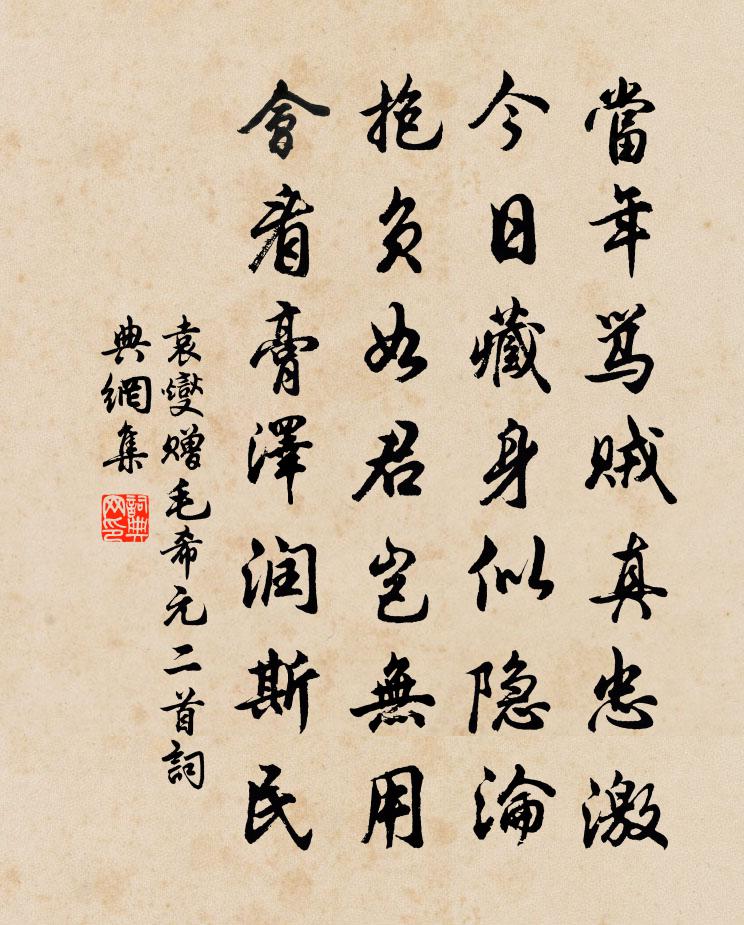 當年骂賊真忠激
今日藏身似隐淪
抱負如君岂無用
會看膏澤润斯民
袁燮赠毛希元二首詞
典網集
詞典
网印